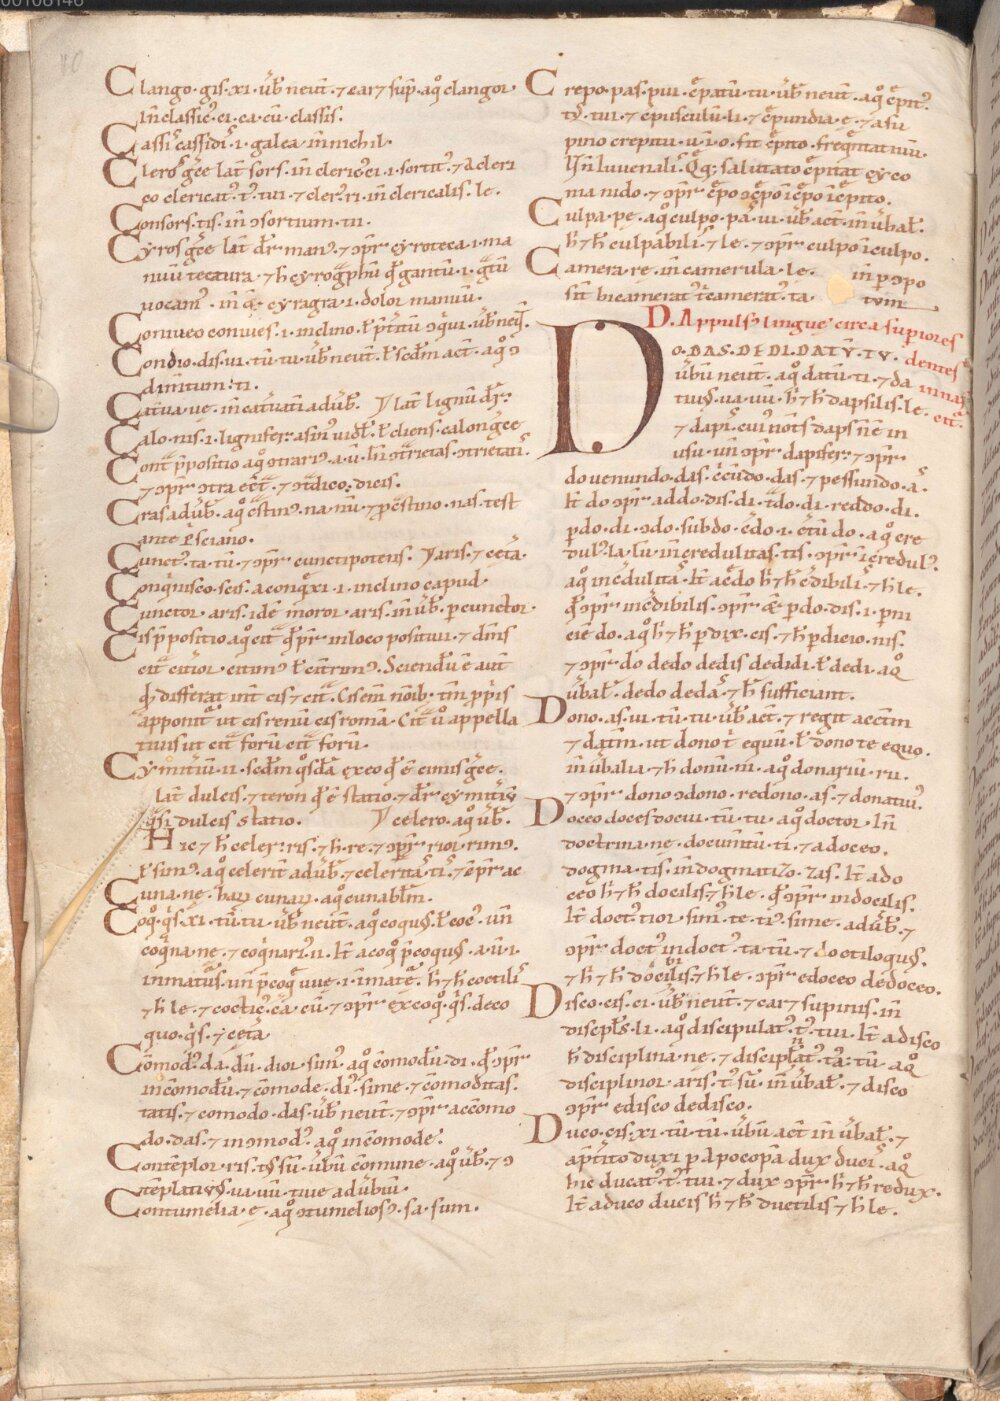 Clango·gis·xi·ūb̄ neut̄·⁊ car⁊ sup̄·aq̊ clangor·
In̄ classic᷒·ci·ca·cū·classis.
Cassi᷒ cassid᷒·i·galea in̄ nichil·
Cleros grēe lat̄ sors·in̄ cleric᷒ ci·i·sortit᷒·⁊ a cleri
co clericat᷒·t᷒·tui·⁊ cler᷒·ri·in̄ clericalis·le·
Consors·tis·in̄ ↄsortium·tii·
Cyros grēe lat̄ dr̄ man᷒·⁊ ↄpr̄ cyroteca·i·ma
nuū tectura·⁊ h̄ cyrogphū
uocam᷒·in̄ cyragra·i·dolor manuū·
Conniueo conniues·i·inclino·
Condio·dis·ui·tū·tu·ūb̄ neut̄·ł scdm̄ act̄·aq̊ ↄ
dimitum·ti·
Cat᷒ua·ue·in̄ cat᷒uati adūb̄· Y lat̄ lignū dr̄:
Calo·nis·i·lignifer: asin᷒ uidt᷒·ł cliens·calon grēe
Cont᷒ p̄positio aq̊ ↄtrari᷒·a·ū·in̄ ↄtrietas·ↄtrietati᷒·
⁊ ↄpr̄ ↄtra·⁊ ↄtdico: dicis·
Cras adūb̄·aq̊ cstin᷒·na·nū·⁊ pcstino·nas·test
ante P̄sciano·
Cunct᷒·ta·tū·⁊ ↄpr̄ cunctipotens· Yaris·⁊ cetā·
Conquisco·scis·a conqxi·i·inclino capud·
Cunctor·aris·idē moror·aris·in ūb̄·percunctor·
Cis p̄positio aq̊ cit᷒ q̄ pr̄ in loco positiui·⁊ dm̄s
cit᷒ citior·citim᷒·ł cit᷒rim᷒·Sciendū ē aut̄
qd̄ differat int̄ cis·⁊ cit᷒·Cisem̄ nōib᷒·tm̄ pp̄is
apponit᷒ ut cis renū cis romā·Cit᷒ ū appella
tiuis ut cit᷒ forū cit᷒ forū·
Cymitiū·ii·scdm̄ qsdā ex eo q̄ ē cimis grēe·
lat̄ dulcis·⁊ teron q̄ ē statio·⁊ dr̄ cymitiū
qsi dulcis statio. Y celero·aq̊ ūb̄·
Hic ⁊ h̄ celer: ris·⁊ h·re·⁊ ↄpr̄ rior·rim᷒·
ł sim᷒·aq̊ celerit᷒ adūb̄·⁊ celerita᷒·ti᷒·
Cuna·ne·haɟ cunaɟ·aq̊ cunablm̄·
Coq̊·qs·xi·tū·tu·ūb̄ neut̄·aq̊ coquus·ł coc᷒·un̄
coqna·ne·⁊ coqnari᷒·ii·It̄ a coq̊ p̄coquus·a·ū·i·
inmatus·un̄ p̄coq uue·i·inmate᷒·h ⁊ h̄ coctili᷒
⁊ h̄ le·⁊ coctic᷒·ca·cū·⁊ ↄpr̄ excoq̊·qs·deco
quo·qs·⁊ cetā
Cōmod᷒·da·dū·dior·sim᷒·aq̊ cōmodū·di·q̄ ↄpr̄
incōmodū·⁊ cōmode·di᷒·sime·⁊ cōmoditas·
tatis·⁊ comodo·das·ūb̄ neut̄·⁊ ↄpr̄ accōmo
do·das·⁊ inↄmod᷒·aq̊ incōmode·
Contēplor·ris·ūbū cōmune·aq̊ ūb̄·⁊ ↄ
tēplatiuus·ua·uū·tiue adūbiū·
Contumelia·ę·aq̊ ↄtumelios᷒·sa·sum·
Crepo·pas·pui·c̄patū·tu·ūb̄ neut̄·aq̊ c̄pit᷒·
t᷒·tui·⁊ c̄pusculū·li·⁊ c̄pundia·ę·⁊ a su
pino crepitu·ū·i·o·fit c̄pito·freqntatiuū·
Iuuenali᷒·Qq; salutato c̄pitat cyco
nia nido·⁊ ↄpr̄ c̄po ↄc̄po ic̄po ic̄pito·
Culpa·pę·aq̊ culpo·pa᷒·ui·ūb̄ act̄·in̄ ūbal᷒·
h ⁊ h̄ culpabili᷒·⁊ le·⁊ ↄpr̄ culpo iculpo·
Camera·rę·in̄ camerula·lę· in pↄpo
sit̄ bicamerat᷒ tcamerat᷒·ta· tum
D. Appuls᷒ lingue circa superiores
dentes
innat
citt᷒.
DO·DAS·DEDI·DATV̄·TV·
ūbū neut̄·aq̊ datū·ti·⁊ da
tiuus·ua·uū·h ⁊ h̄ dapsilis·le·
⁊ dapi᷒·cui᷒ nōts daps n̄ ē in
usu·un̄ ↄpr̄ dapifer: ⁊ ↄpr̄
do uenundo·das·c̄cūdo·das·⁊ pessundo·a᷒·
It̄ do ↄpr̄ addo·dis·di·tdo·di·reddo·di·
pdo·di·ↄdo·subdo·c̄do·i·c̄tū do·aq̊ cre
dul᷒·la·lū·in̄ credulitas·tis·ↄpr̄ ic̄redul᷒·
aq̊ inc̄dulita᷒·It̄ a c̄do h ⁊ h̄ c̄dibili·⁊ h̄ le·
q̄ ↄpr̄ inc̄dibilis·ↄpr̄ pdo·dis·i·pni
ciē do·aq̊ h ⁊ h̄ pdix·cis·⁊ h̄ pdicio·nis·
⁊ ↄpr̄ do dedo dedis dedidi·ł dedi·aq̊
ūbal᷒·dedo deda᷒·⁊ h̄ sufficiant·
Dono·as·ui·tū·tu·ūb̄ act̄·⁊ regit acctm̄
⁊ datm̄·ut dono t equū·ł dono te equo·
in̄ ūbalia·⁊ h̄ donū·ni·aq̊ donariū·rii·
⁊ ↄpr̄ dono ↄdono·redono·as·⁊ donatiuū·
Doceo doces docui·tū·tu·aq̊ doctor·In̄
doctrina·nę·docum̄tū·ti·⁊ a doceo·
dogma·tis·in̄ dogmatizo·zas·It̄ a do
ceo h ⁊ h̄ docilis·⁊ h̄ le·q̄ ↄpr̄ indocilis·
It̄ doct᷒·tior·sim᷒·te·ti᷒·sime·adūb̄·⁊
ↄpr̄ doct᷒ indoct᷒·ta·tū·⁊ doctiloquus·
⁊ h ⁊ h̄ docibilis·⁊ h̄ le·ↄpr̄ edoceo dedoceo·
Disco·cis·ci·ūb̄ neut̄·⁊ car⁊ supinis·in̄
discipls·li·aq̊ discipulat᷒·t᷒·tui·It̄ a disco
h̄ disciplina·nę·⁊ disciplinat᷒·ta: tū·aq̊
disciplinor·aris·t᷒·sū·in̄ ūbal᷒·⁊ disco
ↄpr̄ edisco dedisco·
Duco·cis·xi·tū·tū·ūbū act̄ in̄ ūbal᷒·⁊
a p̄tito duxi p Apocopā dux duci᷒·aq̊
hic ducat᷒·t᷒·tui·⁊ dux ↄpr̄ h ⁊ h̄ redux·
It̄ a duco ducis h ⁊ h̄ ductilis ⁊ h̄ le·